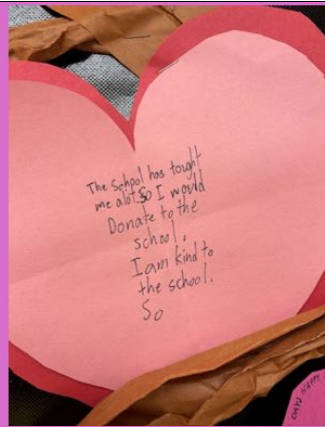 The School has tought
me alot. So I would
Donate to the
school.
I am kind to
the school.
So
DAYS HAPPY